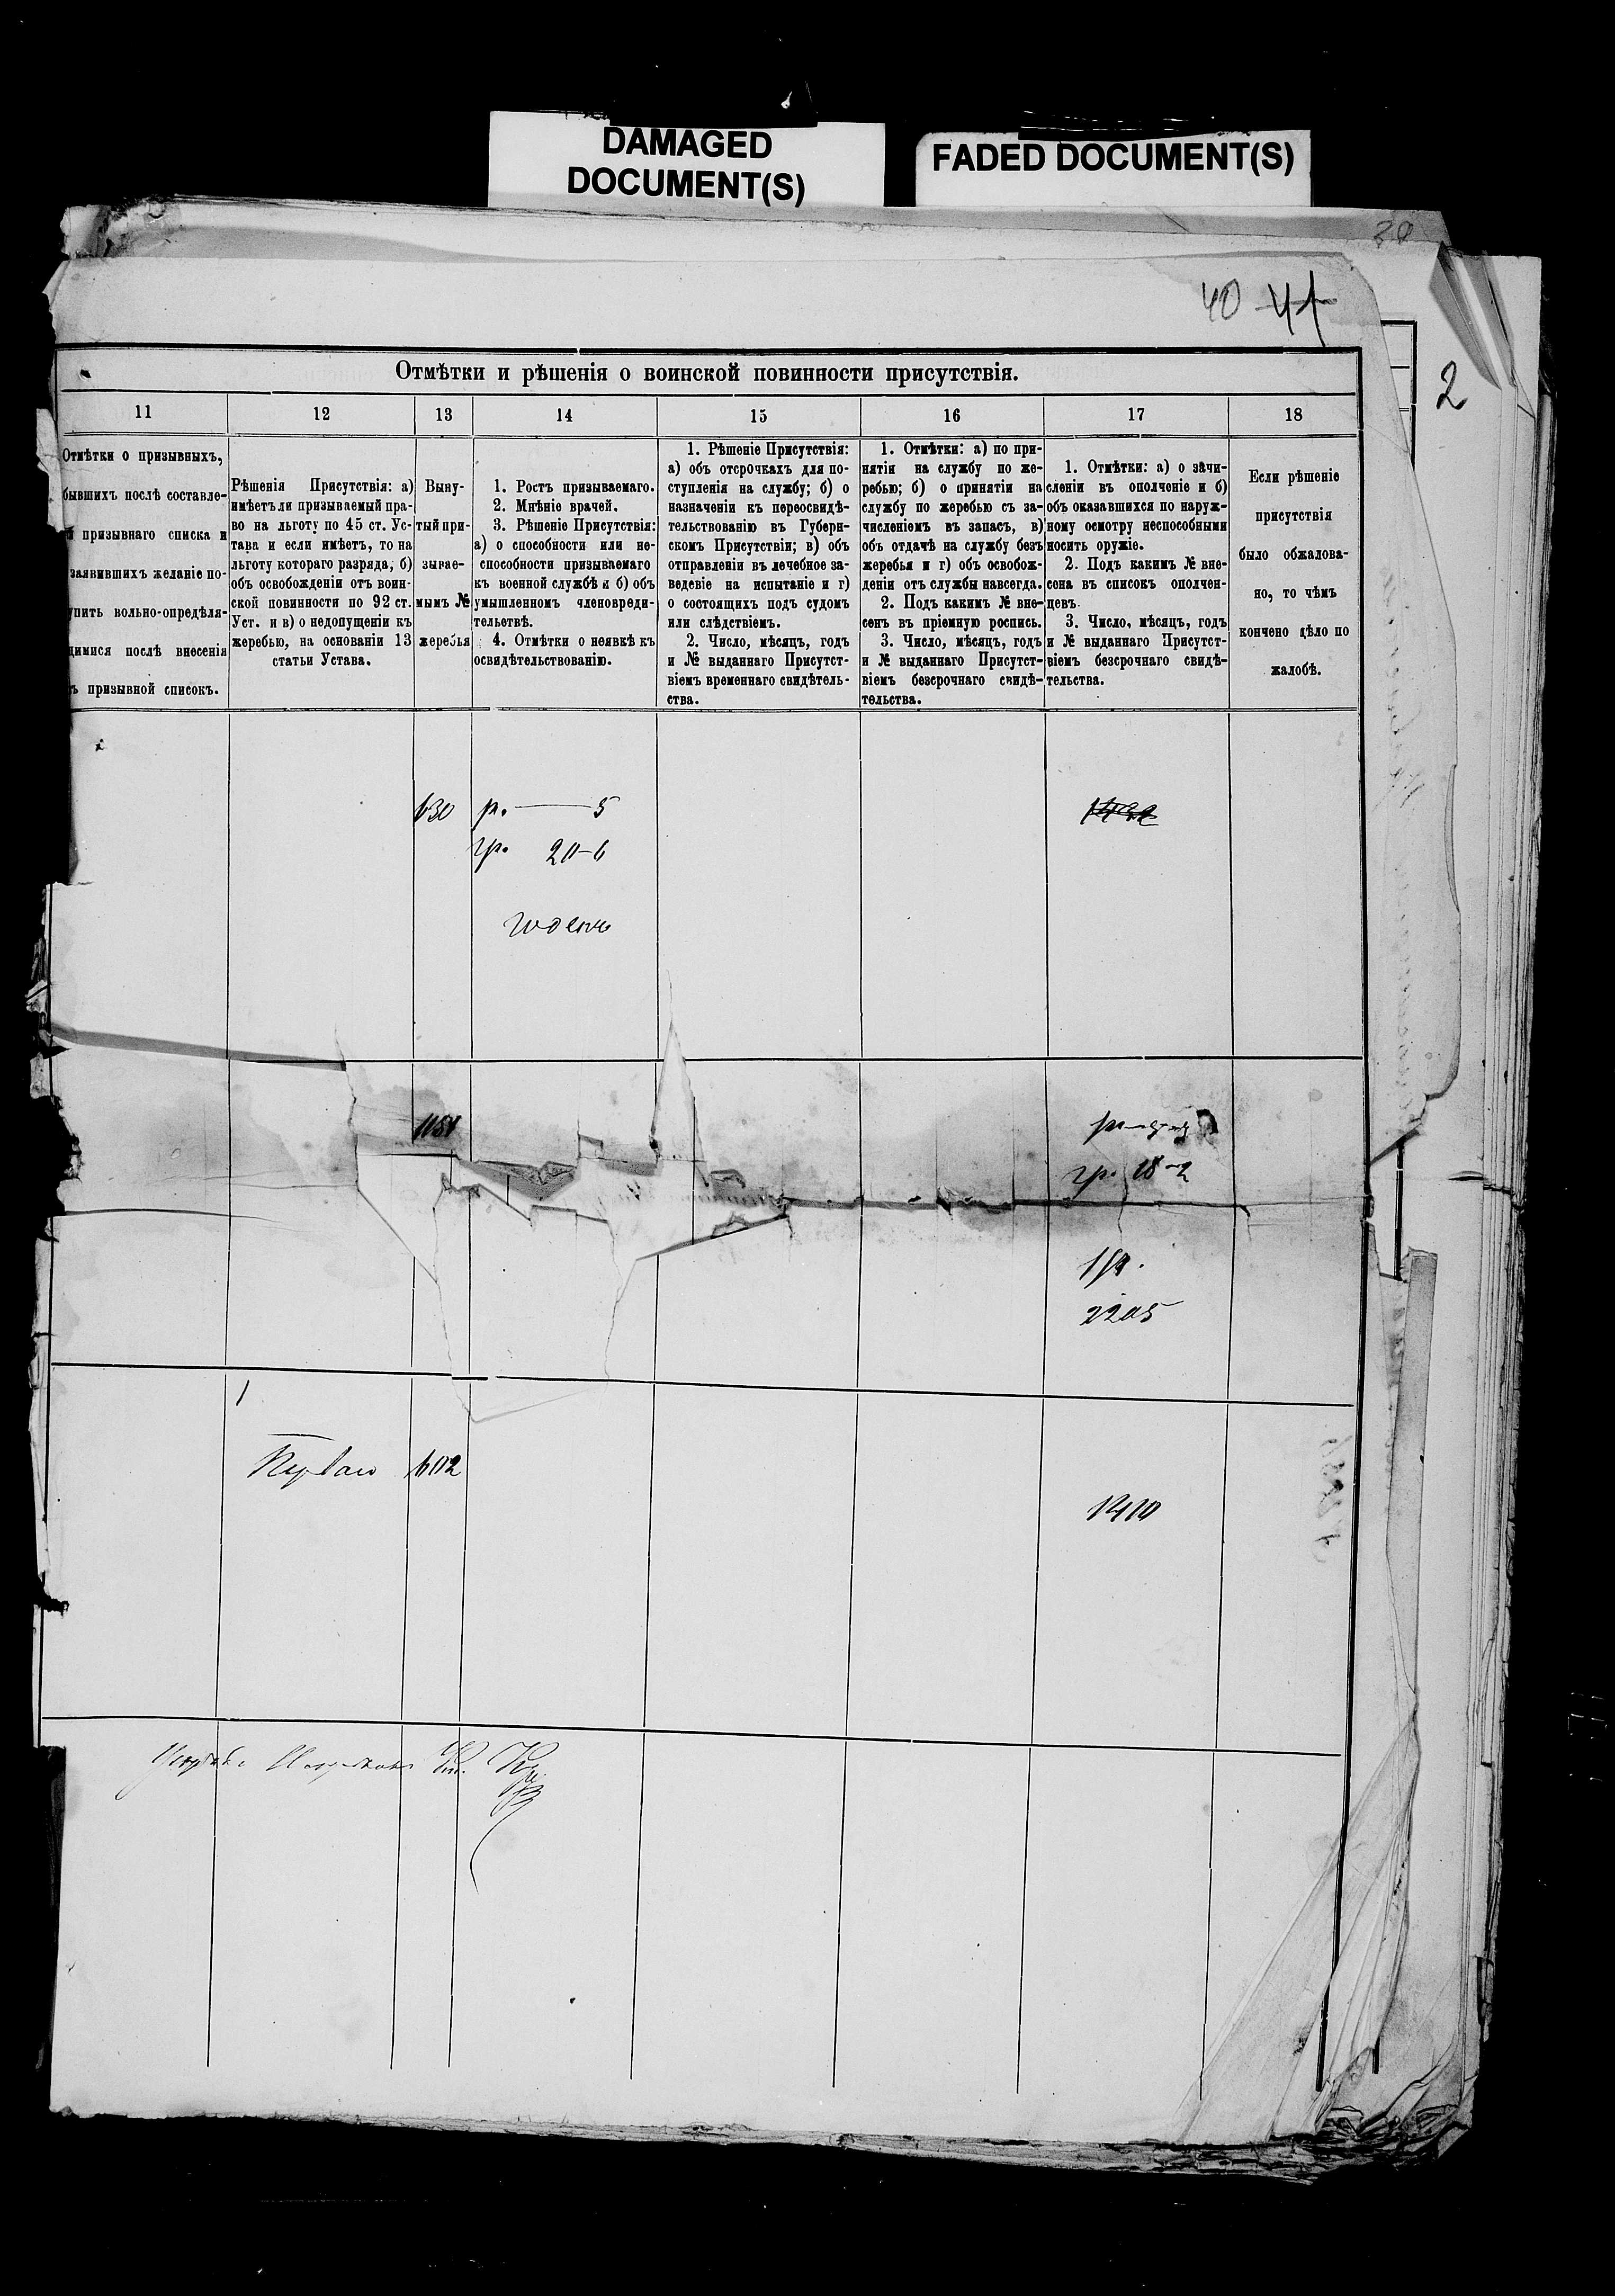 DAMAGED
DOCUMENT(S)
FADED DOCUMENT(S)
40 41
2
Отмѣтки и рѣшенія о воинской повинности присутствія.
11 12 13 14 15 16 17 18
Отмѣтки о призывныхъ,
бывшихъ послѣ составле-
призывнаго списка и
заявившихъ желаніе по-
упить вольно-опредѣля-
щимися послѣ внесенія
ъ призывной списокъ.
Рѣшенія Присутствія: а)
имѣетъ ли призываемый пра-
во на льготу по 45 ст. Ус-
тава и если имѣетъ, то на
льготу котораго разряда; б)
объ освобожденіи отъ воин-
ской повинности по 92 ст.
Уст. и в) о недопущеніи къ
жеребью, на основаніи 13
статьи Устава.
Выну-
тый при-
зывае-
мымъ №
жеребья
1. Ростъ призываемаго.
2. Мнѣніе врачей.
3. Рѣшеніе Присутствія:
а) о способности или не-
способности призываемаго
къ военной службѣ и б) объ
умышленномъ членовреди-
тельствѣ.
4. Отмѣтки о неявкѣ къ
освидѣтельствованію.
1. Рѣшеніе Присутствія:
а) объ отсрочкахъ для по-
ступленія на службу; б) о
назначеніи къ переосвидѣ-
тельствованію въ Губерн-
скомъ Присутствіи; в) объ
отправленіи въ лечебное за-
веденіе на испытаніе и г)
о состоящихъ подъ судомъ
или слѣдствіемъ.
2. Число, мѣсяцъ, годъ
и № выданнаго Присутст-
віемъ временнаго свидѣтель-
ства.
1. Отмѣтки: а) по при-
нятіи на службу по же-
ребью; б) о принятіи на
службу по жеребью съ за-
численіемъ въ запасъ, в)
объ отдачѣ на службу безъ
жеребья и г) объ освобож-
деніи отъ службы навсегда.
2. Подъ какимъ № вне-
сенъ въ пріемную роспись.
3. Число, мѣсяцъ, годъ
и № выданнаго Присутст-
віемъ безсрочнаго свидѣ-
тельства.
1. Отмѣтки: а) о зачи-
сленіи въ ополченіе и б)
объ оказавшихся по наруж-
ному осмотру неспособными
носить оружіе.
2. Подъ какимъ № вне-
сена въ списокъ ополчен-
цевъ.
3. Число, мѣсяцъ, годъ
и № выданнаго Присутст-
віемъ безсрочнаго свидѣ-
тельства.
Если рѣшеніе
присутствія
было обжалова-
но, то чѣмъ
кончено дѣло по
жалобѣ.
630 р. — 5
гр. 20-6
годенъ
1151
гр. 18-2
2205
1
602
1410